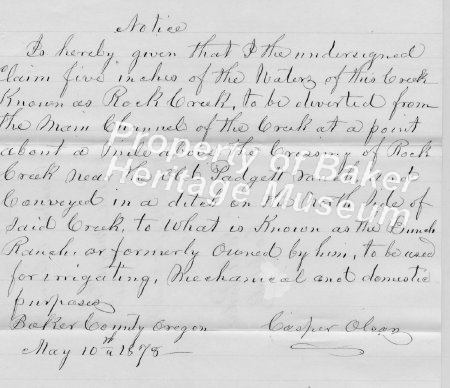 Notice
Is hereby given that I the undersigned
Claim five inches of the Waters of this Creek
Known as Rock Creek, to be diverted from
the Main Channel of the Creek at a point
about a mile above the Crossing of Rock
Creek near the Old Padgett ranch, and
Conveyed in a ditch on the North side of
said Creek, to What is Known as the Ranch
Ranch, or formerly Owned by him, to be used
for irrigating, Mechanical and domestic
purposes
Baker County Oregon Casper Olson
May 10th 1878
Property of Baker
Heritage Museum